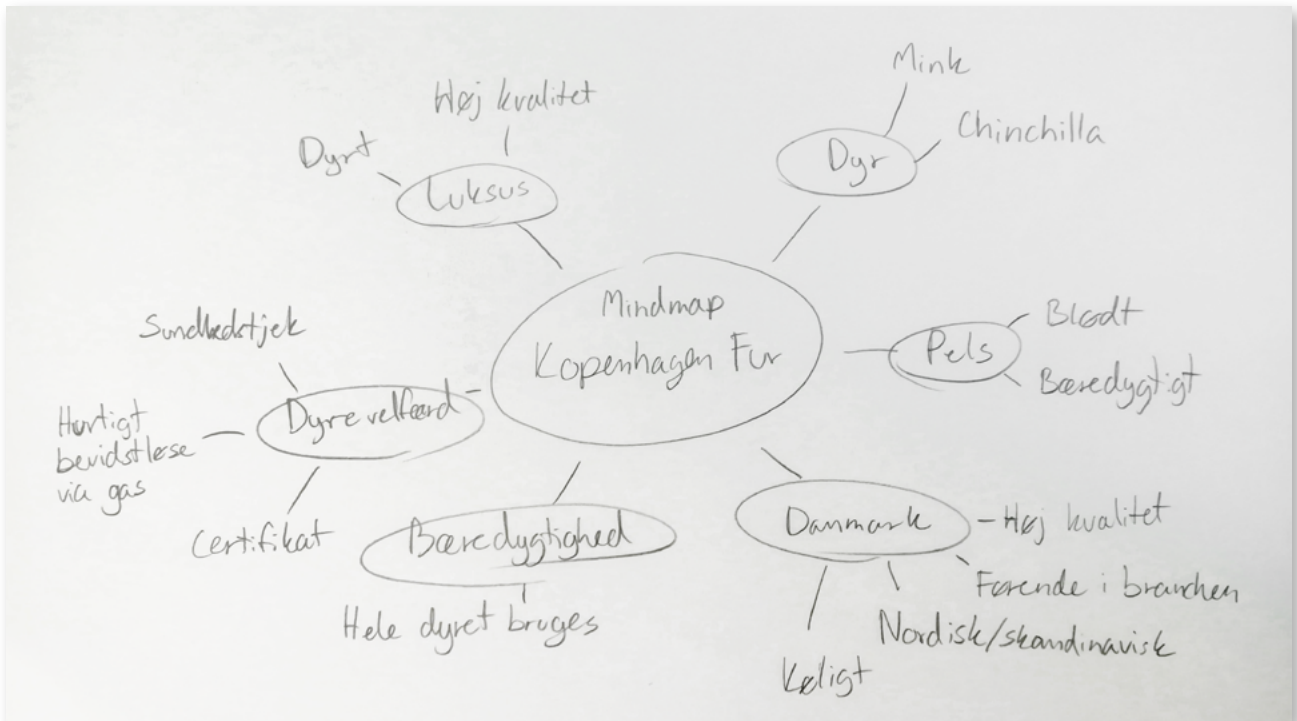 Mindmap
Kopenhagen Fur
Luksus
Dyrt
Høj kvalitet
Dyr
Mink
Chinchilla
Pels
Blødt
Bæredygtigt
Danmark
Høj kvalitet
Førende i branchen
Nordisk/skandinavisk
Køligt
Bæredygtighed
Hele dyret bruges
Dyrevelfærd
Sundhedstjek
Hurtigt
bevidstløse
via gas
Certifikat